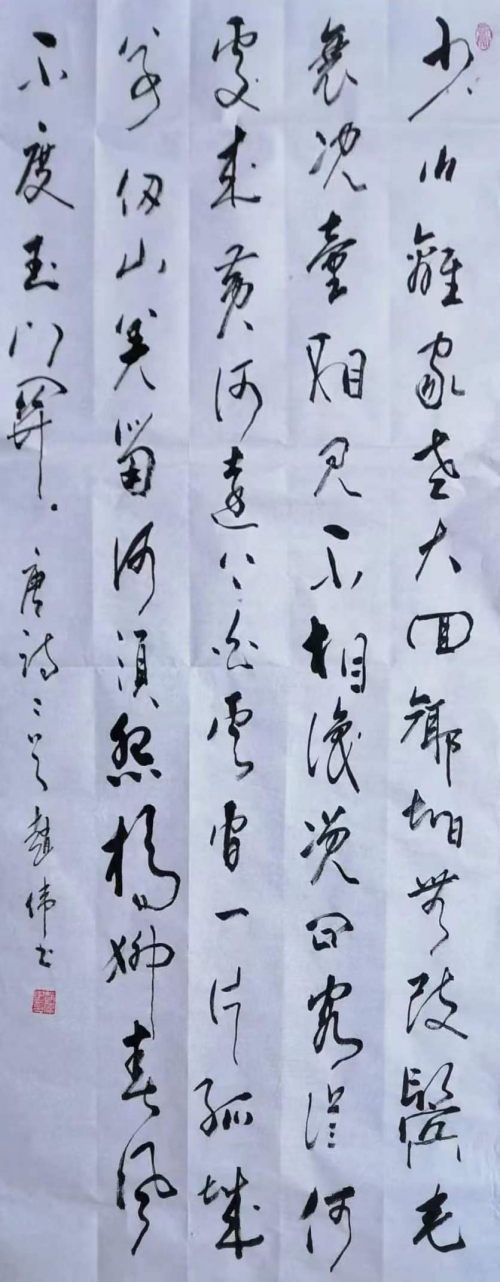 少小離家老大回鄉音無改鬢毛
衰兒童相見不相識笑問客從何
處來黃河遠上白雲間一片孤城
萬仞山羌笛何須怨楊柳春風
不度玉門關 唐詩二首 趙伟書